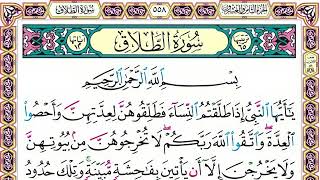 سورة الطلاق
٥٥٨
سُورَةُ الطَّلَاقِ
بِسْمِ اللَّهِ الرَّحْمَٰنِ الرَّحِيمِ
يَٰٓأَيُّهَا ٱلنَّبِيُّ إِذَا طَلَّقْتُمُ ٱلنِّسَآءَ فَطَلِّقُوهُنَّ لِعِدَّتِهِنَّ وَأَحْصُوا۟
ٱلْعِدَّةَ وَٱتَّقُوا۟ ٱللَّهَ رَبَّكُمْ لَا تُخْرِجُوهُنَّ مِنۢ بُيُوتِهِنَّ
وَلَا يَخْرُجْنَ إِلَّآ أَن يَأْتِينَ بِفَٰحِشَةٍ مُّبَيِّنَةٍ وَتِلْكَ حُدُودُ